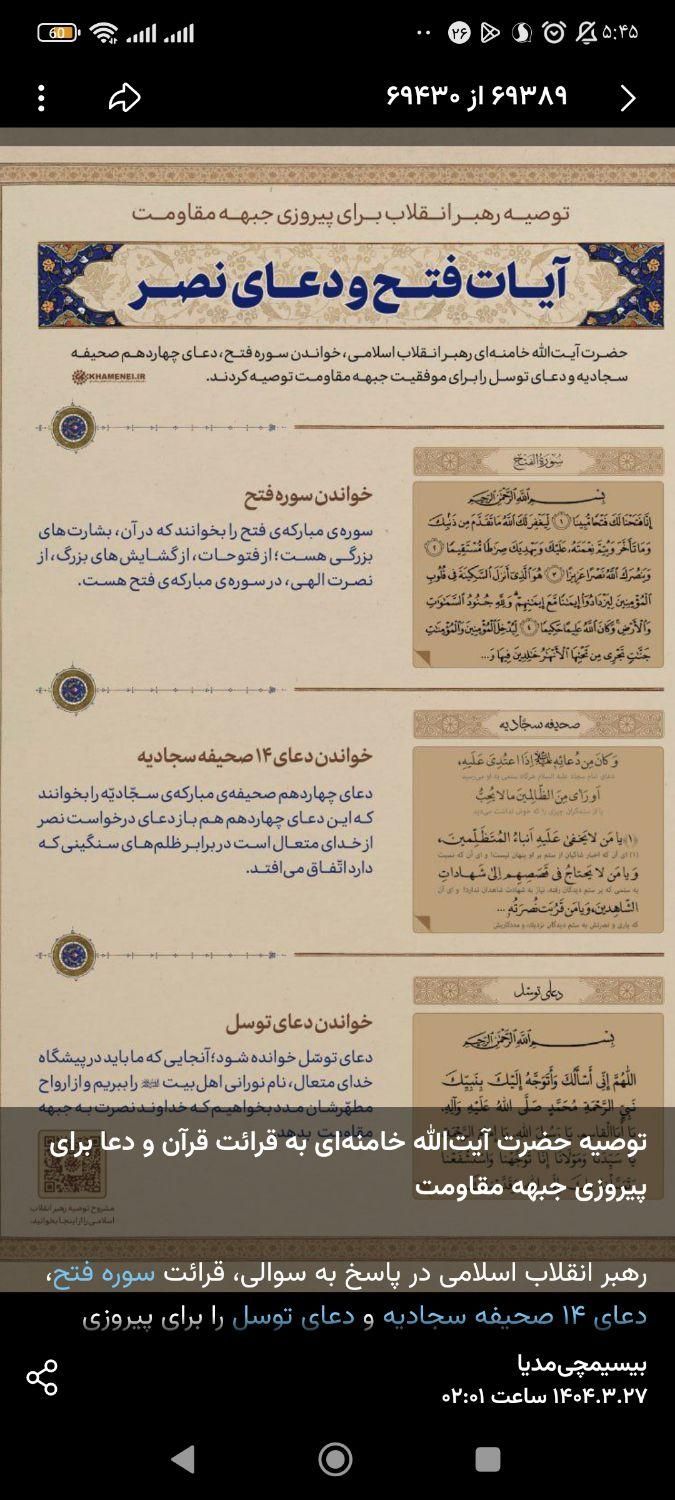 ۵:۴۵
۲۶
60
۶۹۳۸۹ از ۶۹۴۳۰
توصیه رهبر انقلاب برای پیروزی جبهه مقاومت
آیات فتح و دعای نصر
حضرت آیت‌الله خامنه‌ای رهبر انقلاب اسلامی، خواندن سوره فتح، دعای چهاردهم صحیفه
سجادیه و دعای توسل را برای موفقیت جبهه مقاومت توصیه کردند.
KHAMENEI.IR
سُورَةُ الفَتْح
بِسْمِ اللَّهِ الرَّحْمَٰنِ الرَّحِيمِ
إِنَّا فَتَحْنَا لَكَ فَتْحًا مُبِينًا ﴿١﴾ لِيَغْفِرَ لَكَ اللَّهُ مَا تَقَدَّمَ مِنْ ذَنْبِكَ
وَمَا تَأَخَّرَ وَيُتِمَّ نِعْمَتَهُ عَلَيْكَ وَيَهْدِيَكَ صِرَاطًا مُسْتَقِيمًا ﴿٢﴾
وَيَنْصُرَكَ اللَّهُ نَصْرًا عَزِيزًا ﴿٣﴾ هُوَ الَّذِي أَنْزَلَ السَّكِينَةَ فِي قُلُوبِ
الْمُؤْمِنِينَ لِيَزْدَادُوا إِيمَانًا مَعَ إِيمَانِهِمْ وَلِلَّهِ جُنُودُ السَّمَاوَاتِ
وَالْأَرْضِ وَكَانَ اللَّهُ عَلِيمًا حَكِيمًا ﴿٤﴾ لِيُدْخِلَ الْمُؤْمِنِينَ وَالْمُؤْمِنَاتِ
جَنَّاتٍ تَجْرِي مِنْ تَحْتِهَا الْأَنْهَارُ خَالِدِينَ فِيهَا وَ...
خواندن سوره فتح
سوره‌ی مبارکه‌ی فتح را بخوانند که در آن، بشارت‌های
بزرگی هست؛ از فتوحات، از گشایش‌های بزرگ، از
نصرت الهی، در سوره‌ی مبارکه‌ی فتح هست.
صحیفه سجّادیه
وَ كَانَ مِن دُعائِهِ ﷺ إِذَا اعتُدِيَ عَلَيهِ،
دعای امام سجاد علیه السلام هرگاه ستمی به او می‌رسید
أَو رَأى مِنَ الظّالِمينَ ما لا يُحِبُّ
یا از ستمگران چیزی را که خوش نداشت می‌دید
﴿۱﴾ يا مَن لا يَخفىٰ عَلَيهِ أَنباءُ المُتَظَلِّمينَ،
(۱) ای آن که اخبار شاکیان از ستم بر او پنهان نیست! و ای آن که نسبت
وَ يا مَن لا يَحتاجُ في قَصَصِهِم إِلىٰ شَهاداتِ
به ستمی که بر ستم دیدگان رفته، نیاز به شهادت شاهدان ندارد! و ای آن
الشّاهِدينَ، وَ يا مَن قَرُبَت نُصرَتُهُ ...
که یاری و نصرتش به ستم دیدگان نزدیک، و مددکاریش
خواندن دعای ۱۴ صحیفه سجادیه
دعای چهاردهم صحیفه‌ی مبارکه‌ی سجّادیّه را بخوانند
که این دعای چهاردهم هم باز دعای درخواست نصر
از خدای متعال است در برابر ظلم‌های سنگینی که
دارد اتّفاق می‌افتد.
دعای توسل
بِسْمِ اللَّهِ الرَّحْمَٰنِ الرَّحِيمِ
اللَّهُمَّ إِنِّي أَسْأَلُكَ وَ أَتَوَجَّهُ إِلَيْكَ بِنَبِيِّكَ
نَبِيِّ الرَّحْمَةِ مُحَمَّدٍ صَلَّى اللَّهُ عَلَيْهِ وَآلِهِ.
خواندن دعای توسل
دعای توسّل خوانده شود؛ آنجایی که ما باید در پیشگاه
خدای متعال، نام نورانی اهل‌بیت ﷺ را ببریم و از ارواح
مطهّرشان مدد بخواهیم که خداوند نصرت به جبهه
مقاومت بدهد.
مشروح توصیه رهبر انقلاب
اسلامی را از اینجا بخوانید.
توصیه حضرت آیت‌الله خامنه‌ای به قرائت قرآن و دعا برای
پیروزی جبهه مقاومت
رهبر انقلاب اسلامی در پاسخ به سوالی، قرائت سوره فتح،
دعای ۱۴ صحیفه سجادیه و دعای توسل را برای پیروزی
بیسیمچی‌مدیا
۱۴۰۴.۳.۲۷ ساعت ۰۲:۰۱